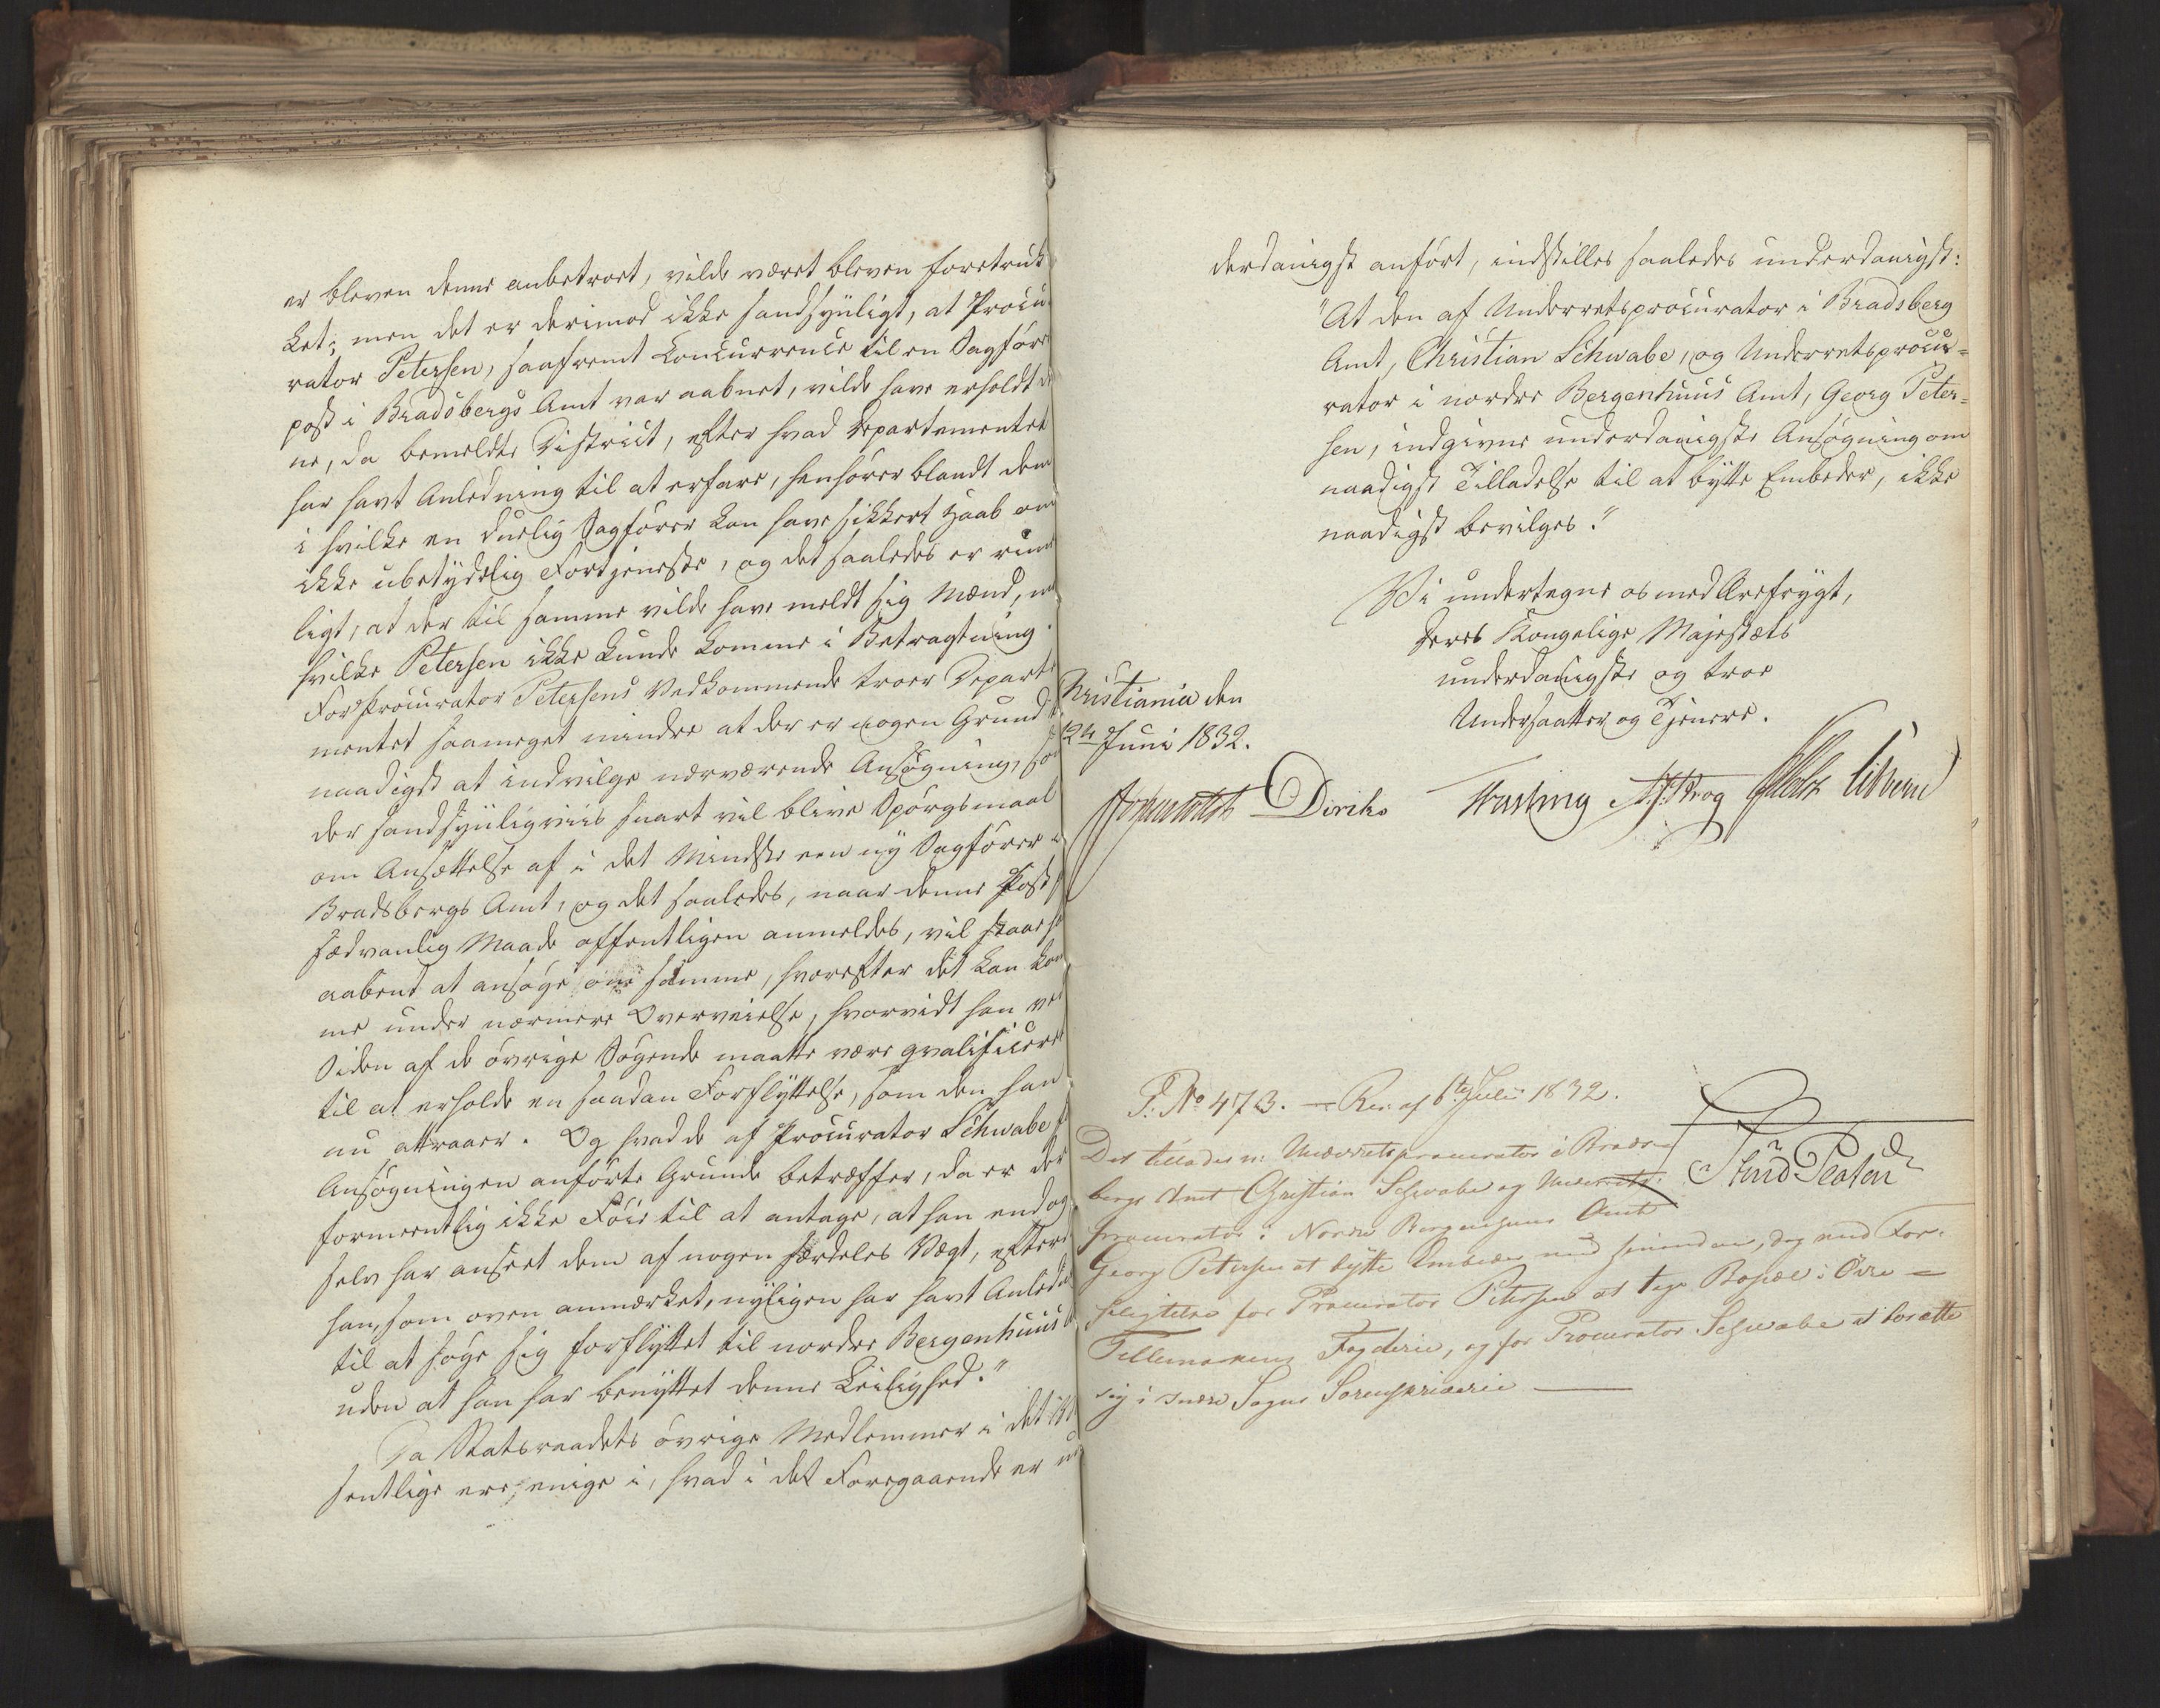 er bleven denne anbetroet, vilde været bleven foretruk
ket; men det er derimod ikke sandsynligt, at Procu
rator Petersen, saafremt Concurrence til en Sagfører
post i Bradsbergs Amt var aabnet, vilde have erholdt de
ne, da bemeldte District, efter hvad Departementet
har havt Anledning til at erfare, henhører blandt dem
i hvilke en duelig Sagfører kan have sikkert Haab om
ikke ubetydelig Fortjeneste, og det saaledes er rime
ligt, at der til samme vilde have meldt sig Mænd, m
hvilke Petersen ikke kunde komme i Betragtning.
For Procurator Petersens Vedkommende troer Departe
mentet saameget mindre at der er nogen Grund t
naadigst at indvilge nærværende Ansøgning, som
der sandsynligviis snart vil blive Spørgsmaal
om Ansættelse af i det Mindste een ny Sagfører i
Bradsbergs Amt, og det saaledes, naar denne Post p
sædvanlig Maade offentligen anmeldes, vil staae ha
aabent at ansøge om samme, hvorefter det kan kom
me under nærmere Overveielse, hvorvidt han ved
Siden af de øvrige Søgende maatte være qvalificeret
til at erholde en saadan Forflyttelse, som den han
nu attraaer. Og hvad de af Procurator Schwabe f
Ansøgningen anførte Grunde betræffer, da er der
formeentlig ikke Føie til at antage, at han endog
selv har anseet dem af nogen særdeles Vægt, efterso
han, som oven anmærket, nyligen har havt Anledn
til at søge sig forflyttet til nordre Bergenhuus A
uden at han har benyttet denne Leilighed."
Da Statsraadets øvrige Medlemmer i det Væ
sentlige ere enige i, hvad i det Foregaaende er un
derdanigst anført, indstilles saaledes underdanigst:
"At den af Underretsprocurator i Bradsberg
Amt, Christian Schwabe, og Underretsprocu=
rator i nordre Bergenhuus Amt, Georg Peter=
sen, indgivne underdanigste Ansøgning om
naadigst Tilladelse til at bytte Embeder, ikke
naadigst bevilges."
Vi undertegne os med Ærefrygt,
Deres Kongelige Majestæts
underdanigste og troe
Undersaatter og Tjenere.
Christiania den
12te Juni 1832.
Diriks
Krog
P. No 473. – Res. af 6te Juli 1832.
Det tillades
Underretsprocurator i Brads-
bergs Amt Christian Schwabe og Underrets-
procurator i Nordre Bergenhuus Amt
Georg Petersen at bytte Embeder med hinanden, dog med For-
pligtelse for Procurator Petersen at tage Bopæl i Øvre
Tellemarkens Fogderie, og for Procurator Schwabe at bosætte
sig i Indre Sogns Sorenskriverie